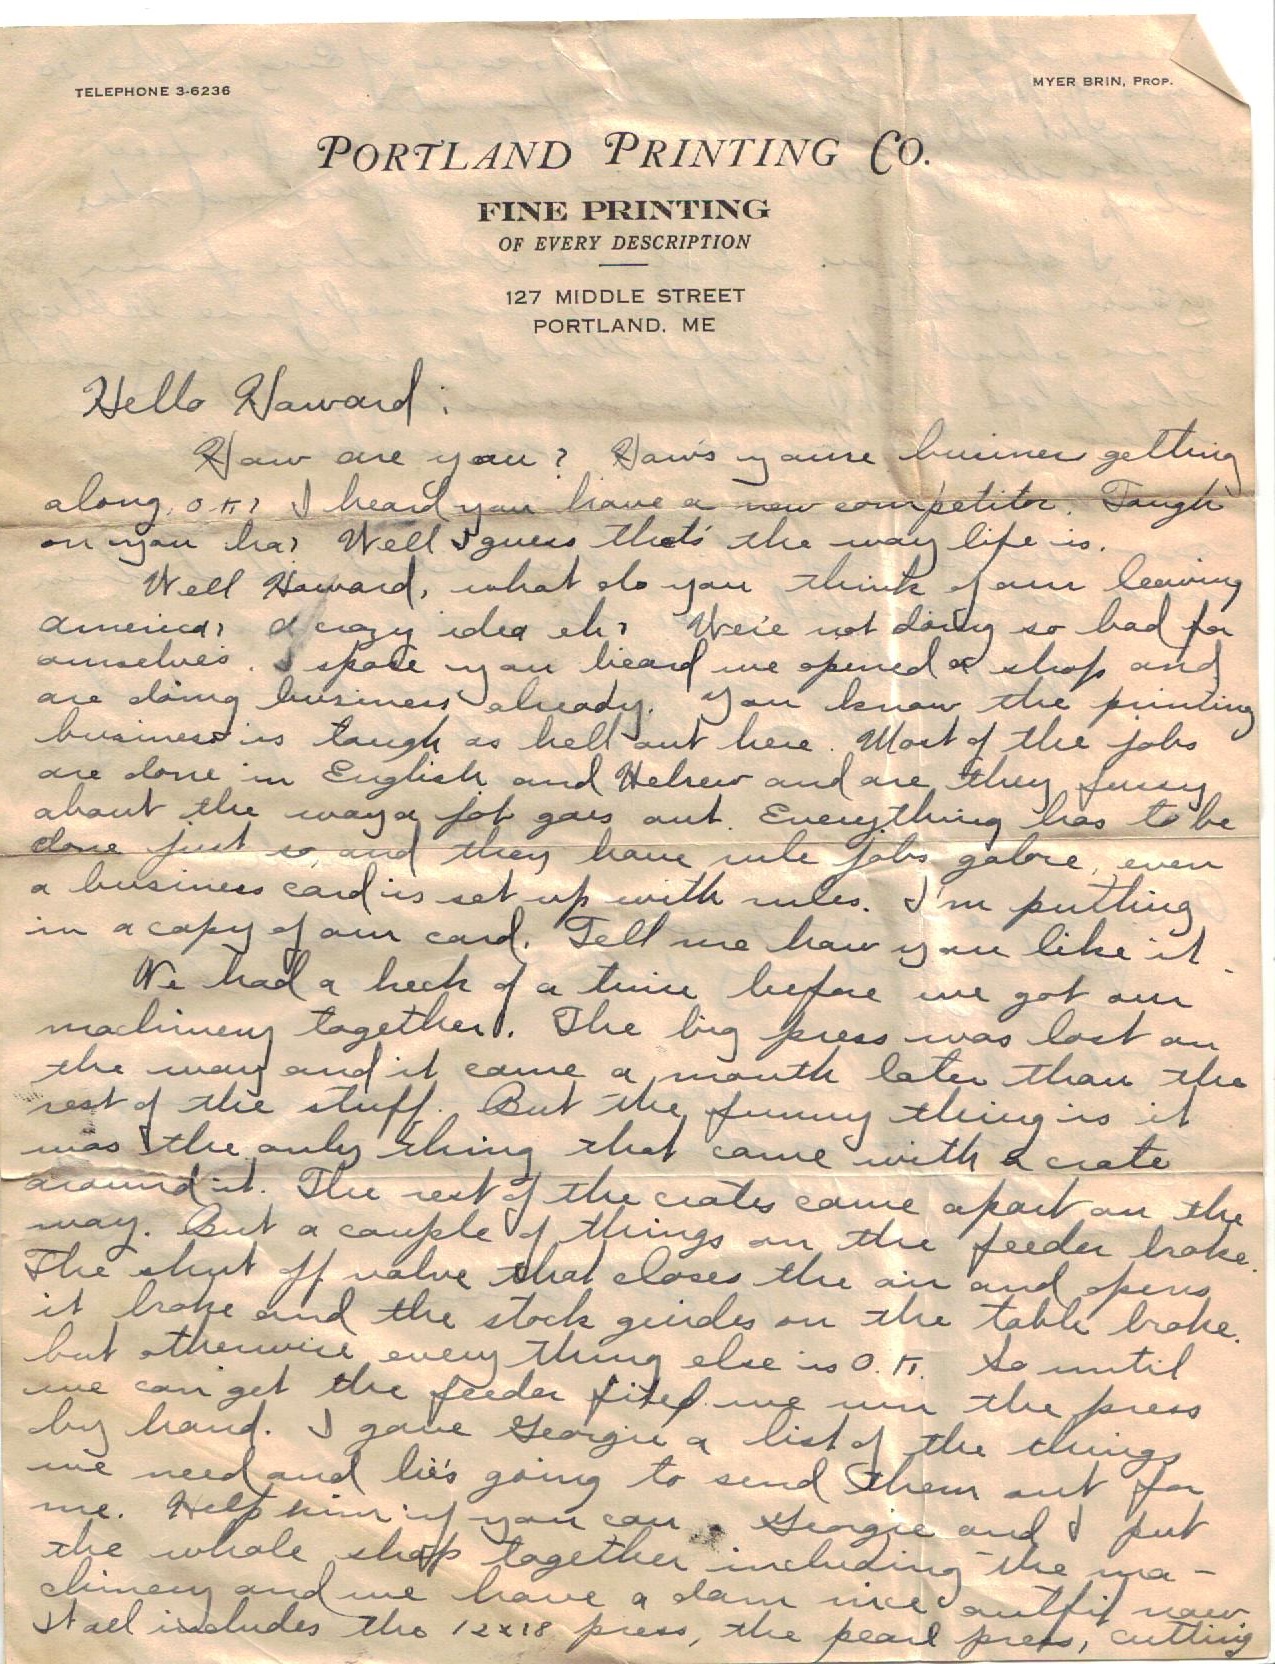 TELEPHONE 3-6236
MYER BRIN, PROP.
PORTLAND PRINTING CO.
FINE PRINTING
OF EVERY DESCRIPTION
127 MIDDLE STREET
PORTLAND, ME
Hello Howard:
How are you? How's youre business getting
along, O.K? I heard you have a new competitor. Tough
on you ha? Well I guess that's the way life is.
Well Howard, what do you think of our leaving
America? A crazy idea eh? We're not doing so bad for
ourselves. I spose you heard we opened a shop and
are doing business already. You know the printing
business is tough as hell out here. Most of the jobs
are done in English and Hebrew and are they fussy
about the way a job goes out. Everything has to be
done just so, and they have rule jobs galore, even
a business card is set up with rules. I'm putting
in a copy of our card. Tell me how you like it.
We had a heck of a time before we got our
machinery together. The big press was lost on
the way and it came a month later than the
rest of the stuff. But the funny thing is it
was the only thing that came with a crate
around it. The rest of the crates came apart on the
way. But a couple of things on the feeder broke.
The shut off valve that closes the air and opens
it broke and the stock guides on the table broke.
but otherwise every thing else is O.K. So until
we can get the feeder fixed we run the press
by hand. I gave Georgie a list of the things
we need and he's going to send them out for
me. Help him if you can. Georgie and I put
the whole shop together including the ma-
chinery and we have a darn nice outfit now.
It all includes the 12x18 press, the pearl press, cutting